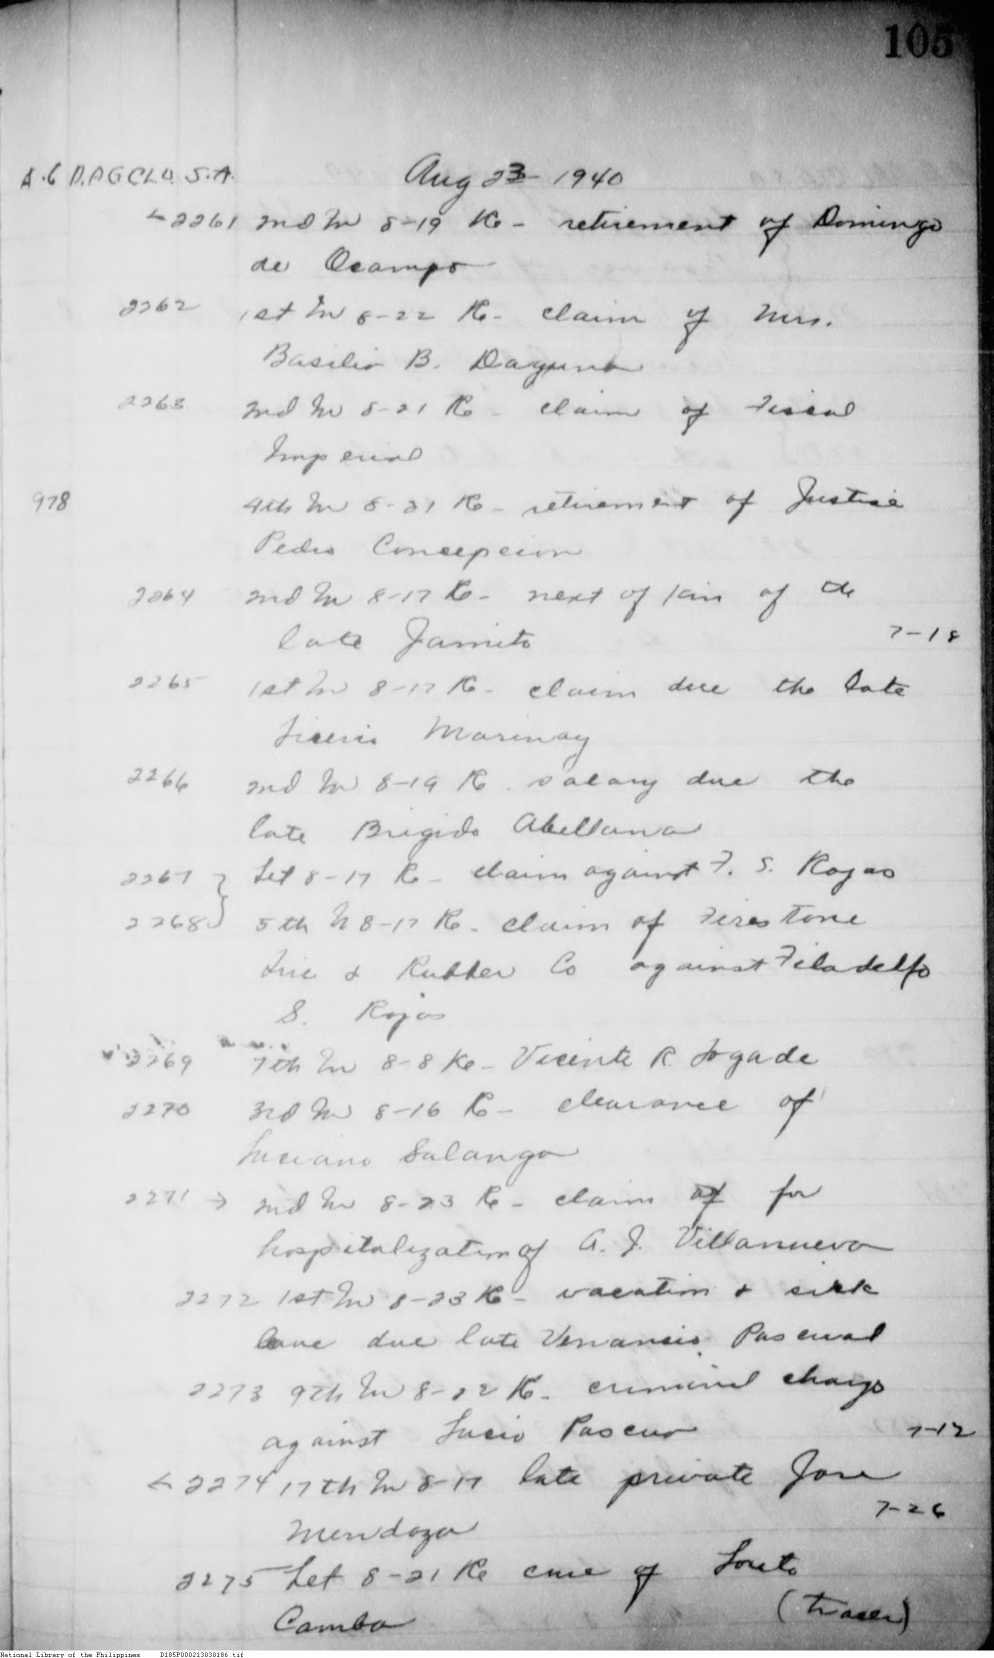 105
Aug 23 - 1940
2261 2nd In 8-19 Re - retirement of Domingo
de Ocampo
2262 1st In 8-22 Re - claim of Mrs.
Basilio B. Daguna
2263 2nd In 8-21 Re - claim of Fiscal
Imperial
978 4th In 8-21 Re - retirement of Justice
Pedro Concepcion
2264 2nd In 8-17 Re - next of kin of the
late Jamito 7-18
2265 1st In 8-17 Re - claim due the late
Marinay
2266 2nd In 8-19 Re - salary due the
late Brigido Abellana
2267 Let 8-17 Re - claim against F. S. Rojas
2268 5th In 8-17 Re - claim of Firestone
Tire & Rubber Co against Filadelfo
S. Rojas
2269 7th In 8-8 Re - Vicente R.
2270 3rd In 8-16 Re - clearance of
Luciano Salanga
2271 → 2nd In 8-23 Re - claim of for
hospitalization of A. J. Villanueva
2272 1st In 8-23 Re - vacation & sick
leave due late Venancio Pascual
2273 9th In 8-22 Re - criminal charge
against Lucio Pascua 7-12
2274 17th In 8-17 late private Jose
Mendoza 7-26
2275 Let 8-21 Re case of Loreto
Camba (tracer)
National Library of the Philippines D185P000213030186.tif